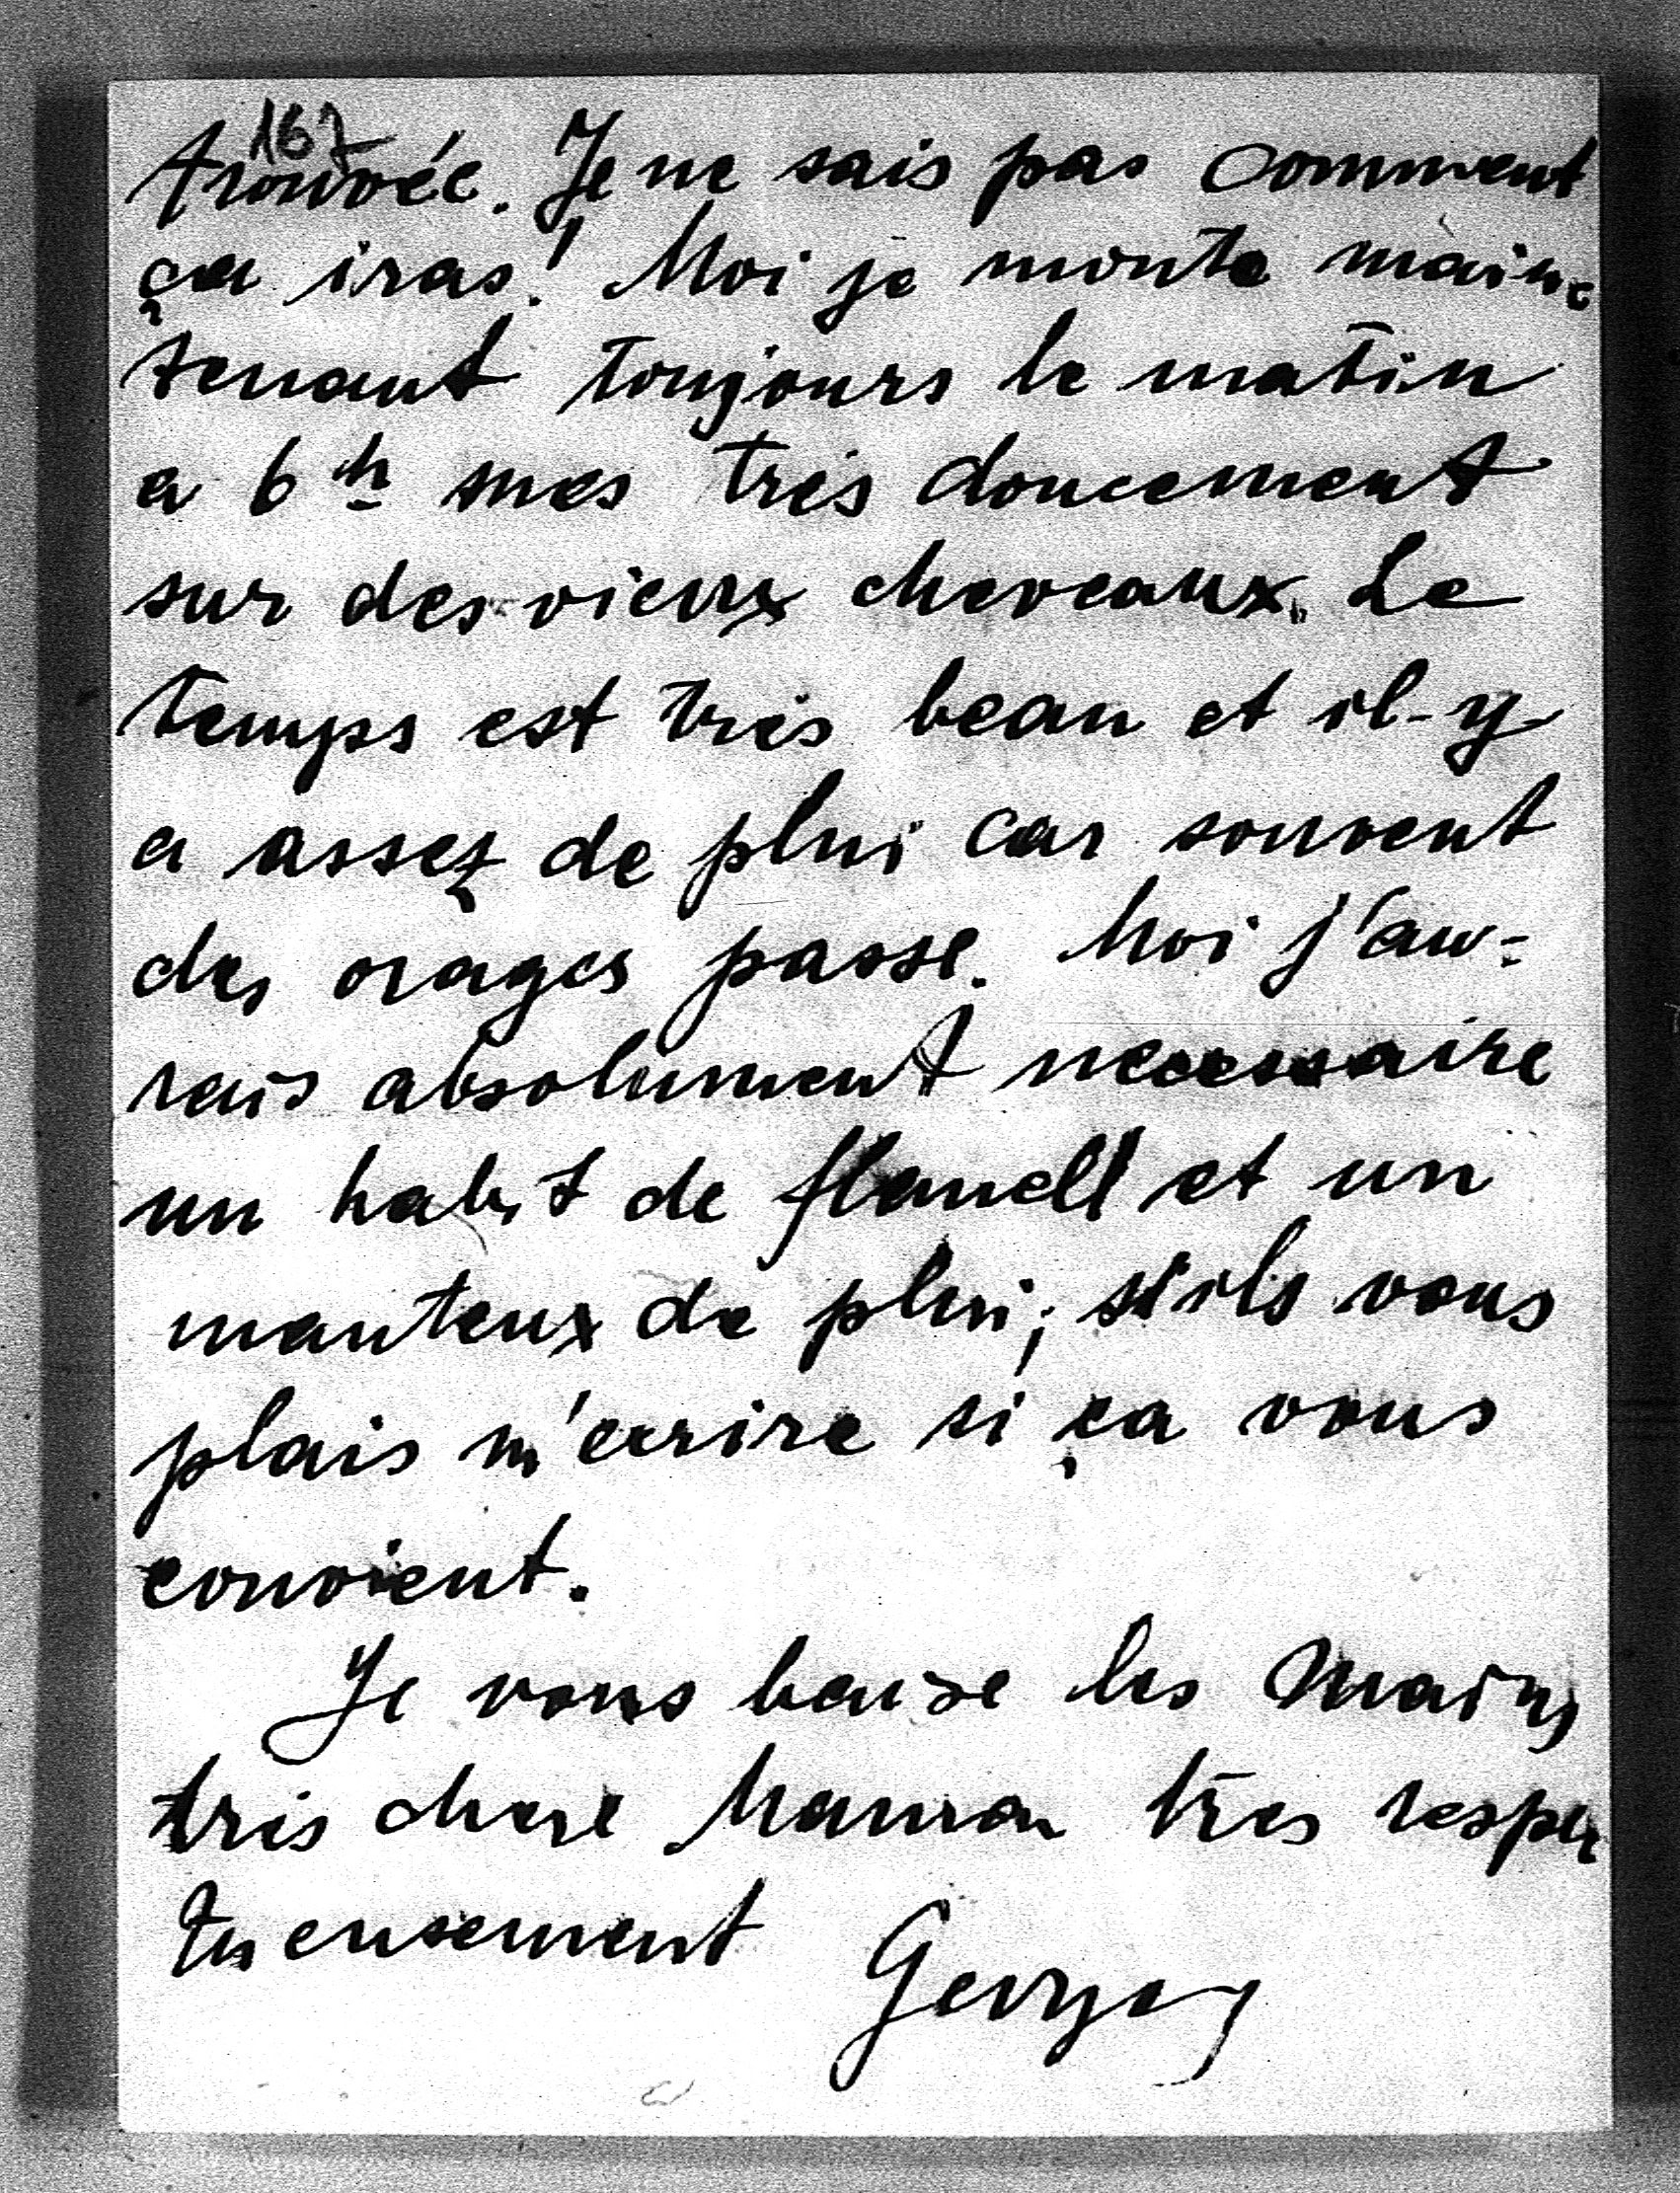 167
trouvée. Je ne sais pas comment
ça iras! Moi je monte main-
tenant toujours le matin
a 6h mes très doucement
sur des vieux cheveaux. Le
temps est très beau et il-y
a assez de plui car souvent
des orages passe. Moi j'au-
rais absolument necessaire
un habit de flanell et un
manteux de plui; s'ils vous
plais m'ecrire si ça vous
convient.
Je vous baise les mains
très chere Maman très respec
tueusement Georges